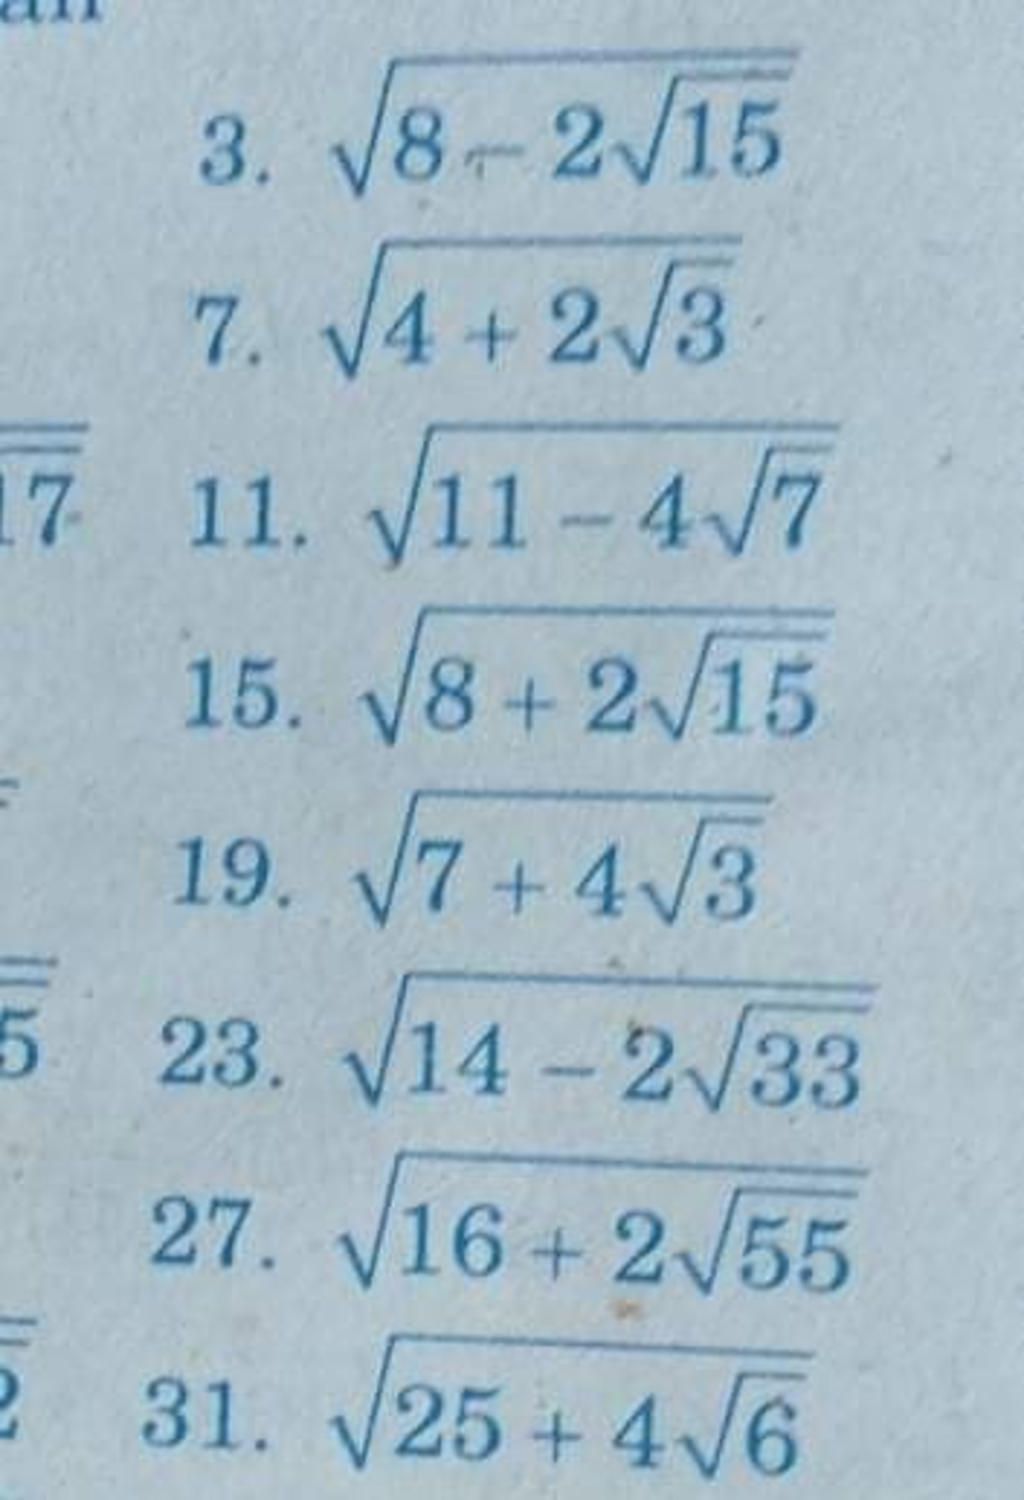 3. √(8 - 2√15)
7. √(4 + 2√3)
17 11. √(11 - 4√7)
15. √(8 + 2√15)
19. √(7 + 4√3)
5 23. √(14 - 2√33)
27. √(16 + 2√55)
2 31. √(25 + 4√6)